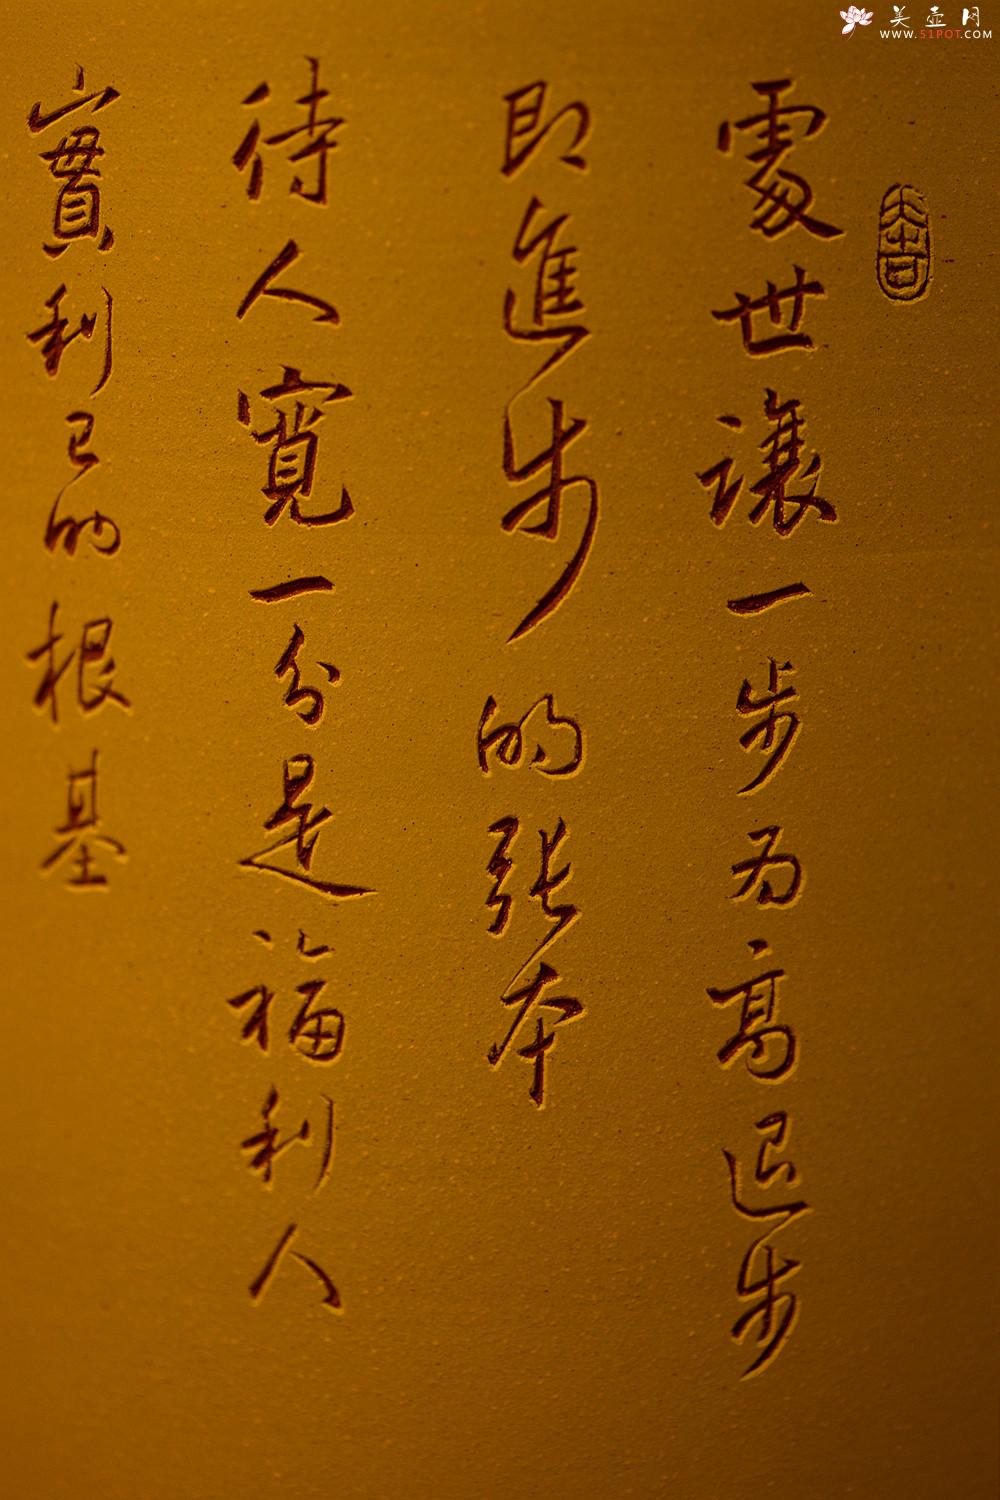 美壶网
WWW.51POT.COM
大吉
處世讓一步为高退步
即進步的张本
待人寬一分是福利人
實利己的根基